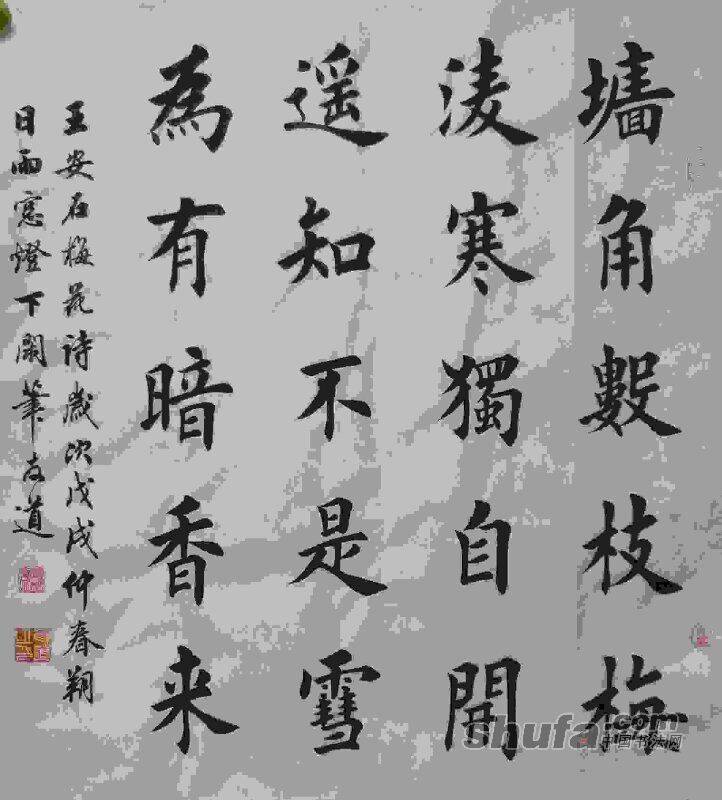 墻角數枝梅
淩寒獨自開
遥知不是雪
為有暗香来
王安石梅花诗歲次戊戌仲春朔
日雨窓燈下閑筆友道
shufa.com
中国书法网